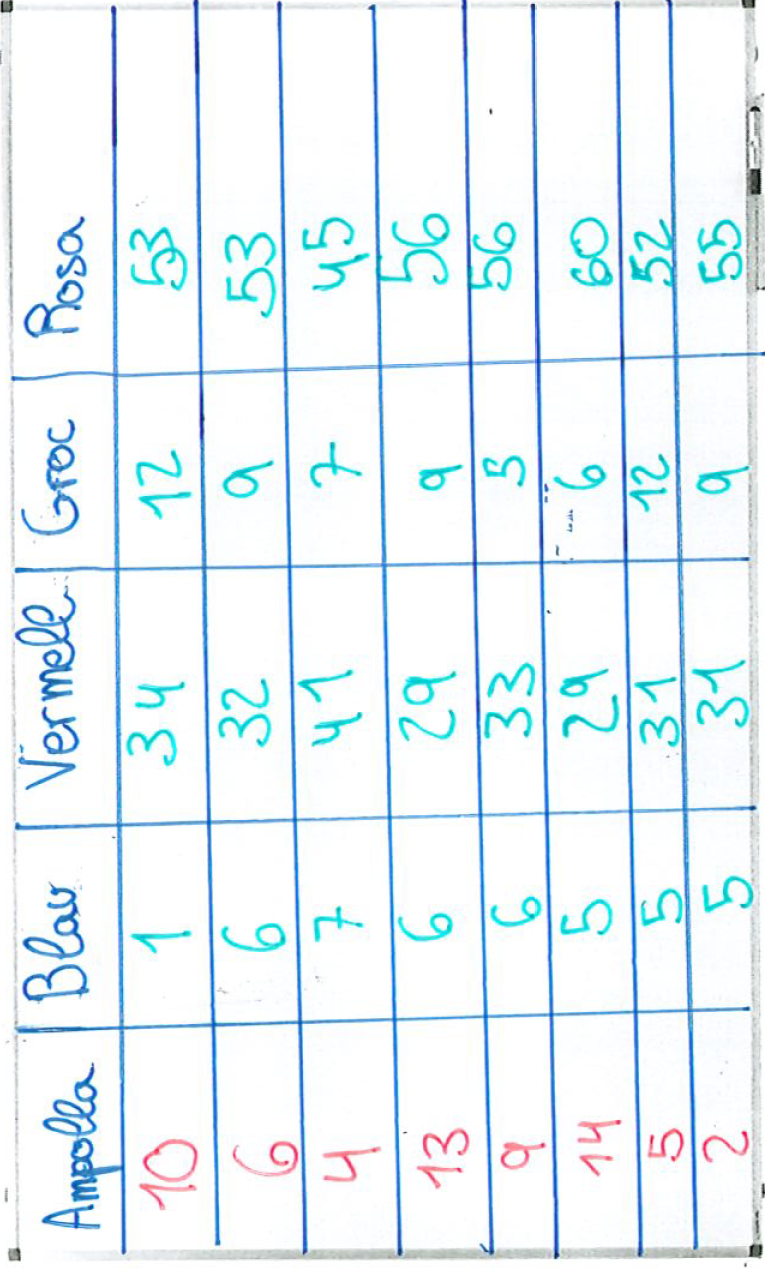 Ampolla Blau Vermell Groc Rosa
10 1 34 12 53
6 6 32 9 53
4 7 41 7 45
13 6 29 9 56
9 6 33 5 56
14 5 29 6 60
5 5 31 12 52
2 5 31 9 55